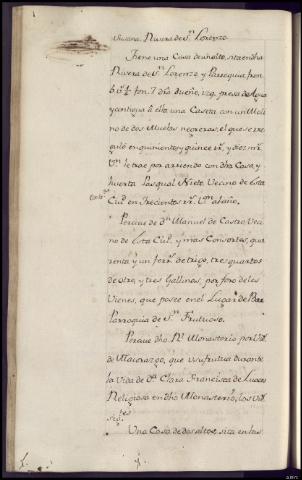 viciana. Rivera de Sn. Lorenzo
Tiene una Casa de un alto, sita en dha
Rivera de Sn. Lorenzo y Parroquia, fren
dho dueño, vez. presa de Agua
y contigua à ella una Caseta con un Moli
no de dos Muelas negreras, el que se rre
guló en quinientos y quince rr. y diez mrs.
Vn. le trae por arriendo con dha Casa y
huerta Pasqual Nieto Vecino de esta
Ciud. en trecientos rr. Vn. al año.
Percive de Dn. Manuel de Castro Veci
no de esta Ciud. y mas Consortes, qua
renta y un ferrs. de trigo, tres quartos
de otro, y tres Gallinas, por foro de los
Vienes, que posee en el Lugar de Bar
Parroquia de Sn. Fructuoso.
Percive dho Rl. Monasterio por Vía
de Mayorazgo, que usufrutua durante
la Vida de Da. Clara Francisca de Luaces
Religiosa en dho Monasterio, los Vie
sigtes
Una Casa de dos altos, sita en las